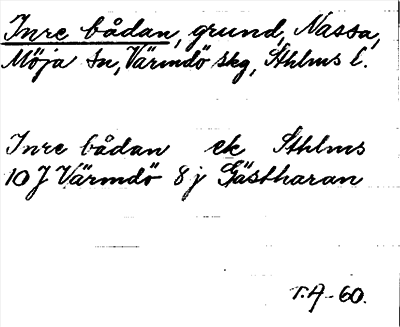 Inre bådan, grund, Nassa,
Möja sn, Värmdö skg, Sthlms l.
Inre bådan ek Sthlms
10 J Värmdö 8 j Gästharan
T.A-60.